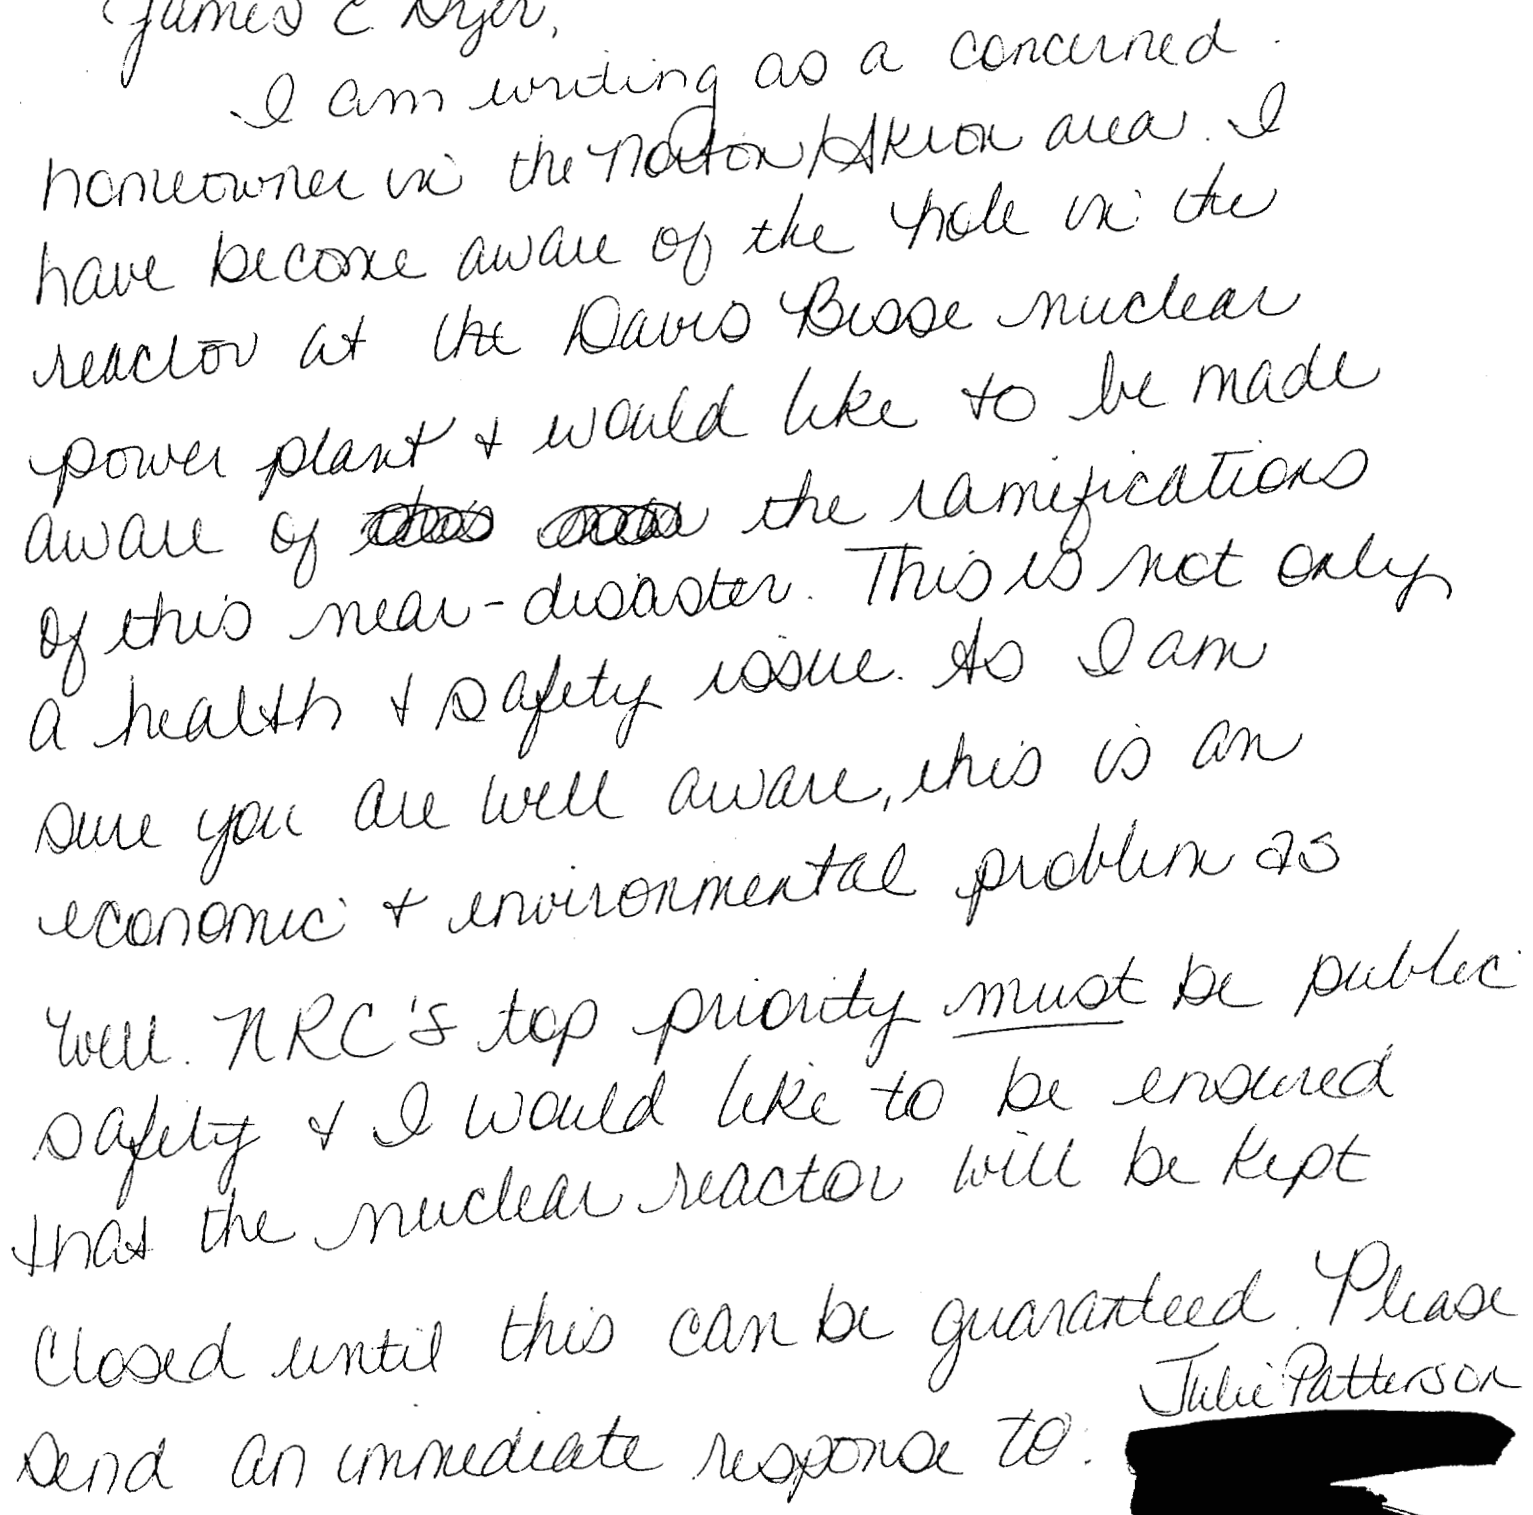 James E Dyer,
I am writing as a concerned
homeowner in the Norton/Akron area. I
have become aware of the hole in the
reactor at the Davis Besse nuclear
power plant & would like to be made
aware of the ramifications
of this near-disaster. This is not only
a health & safety issue. As I am
sure you are well aware, this is an
economic & environmental problem as
well. NRC's top priority must be public
safety & I would like to be ensured
that the nuclear reactor will be kept
closed until this can be guaranteed. Please
send an immediate response to: Julie Patterson